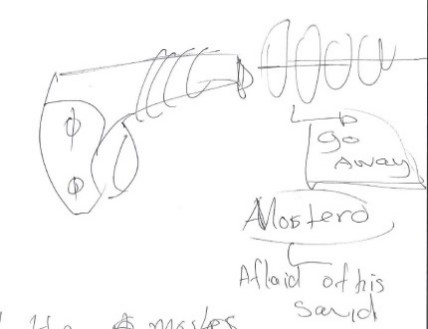 go
Away
Mosterd
Aflaid of his
Sawd
master